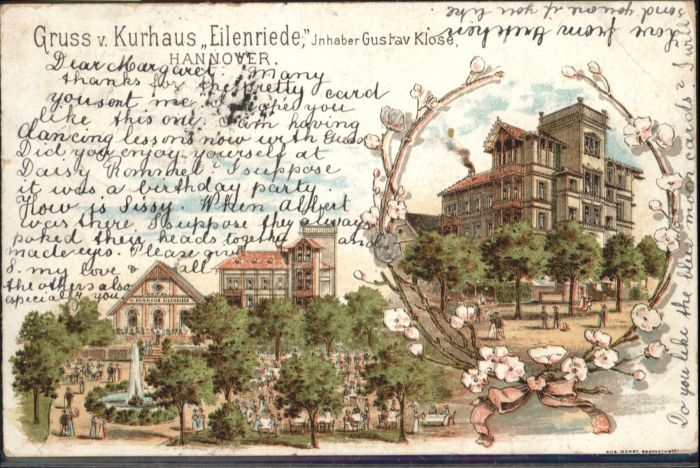 Gruss v. Kurhaus „Eilenriede,” Jnhaber Gustav Klose,
HANNOVER.
Dear Margaret. Many
thanks for the pretty card
you sent me. I hope you
like this one. I am having
dancing lessons now with
Did you enjoy yourself at
Daisy Rommel. I suppose
it was a birthday party.
How is Sissy. When Albert
was there. I suppose they always
poked their heads together and
made eyes. Please give
S. my love & all
the others also
especially you.
Love from
send you one if you like
Do you like the blue I will
KURHAUS EILENRIEDE